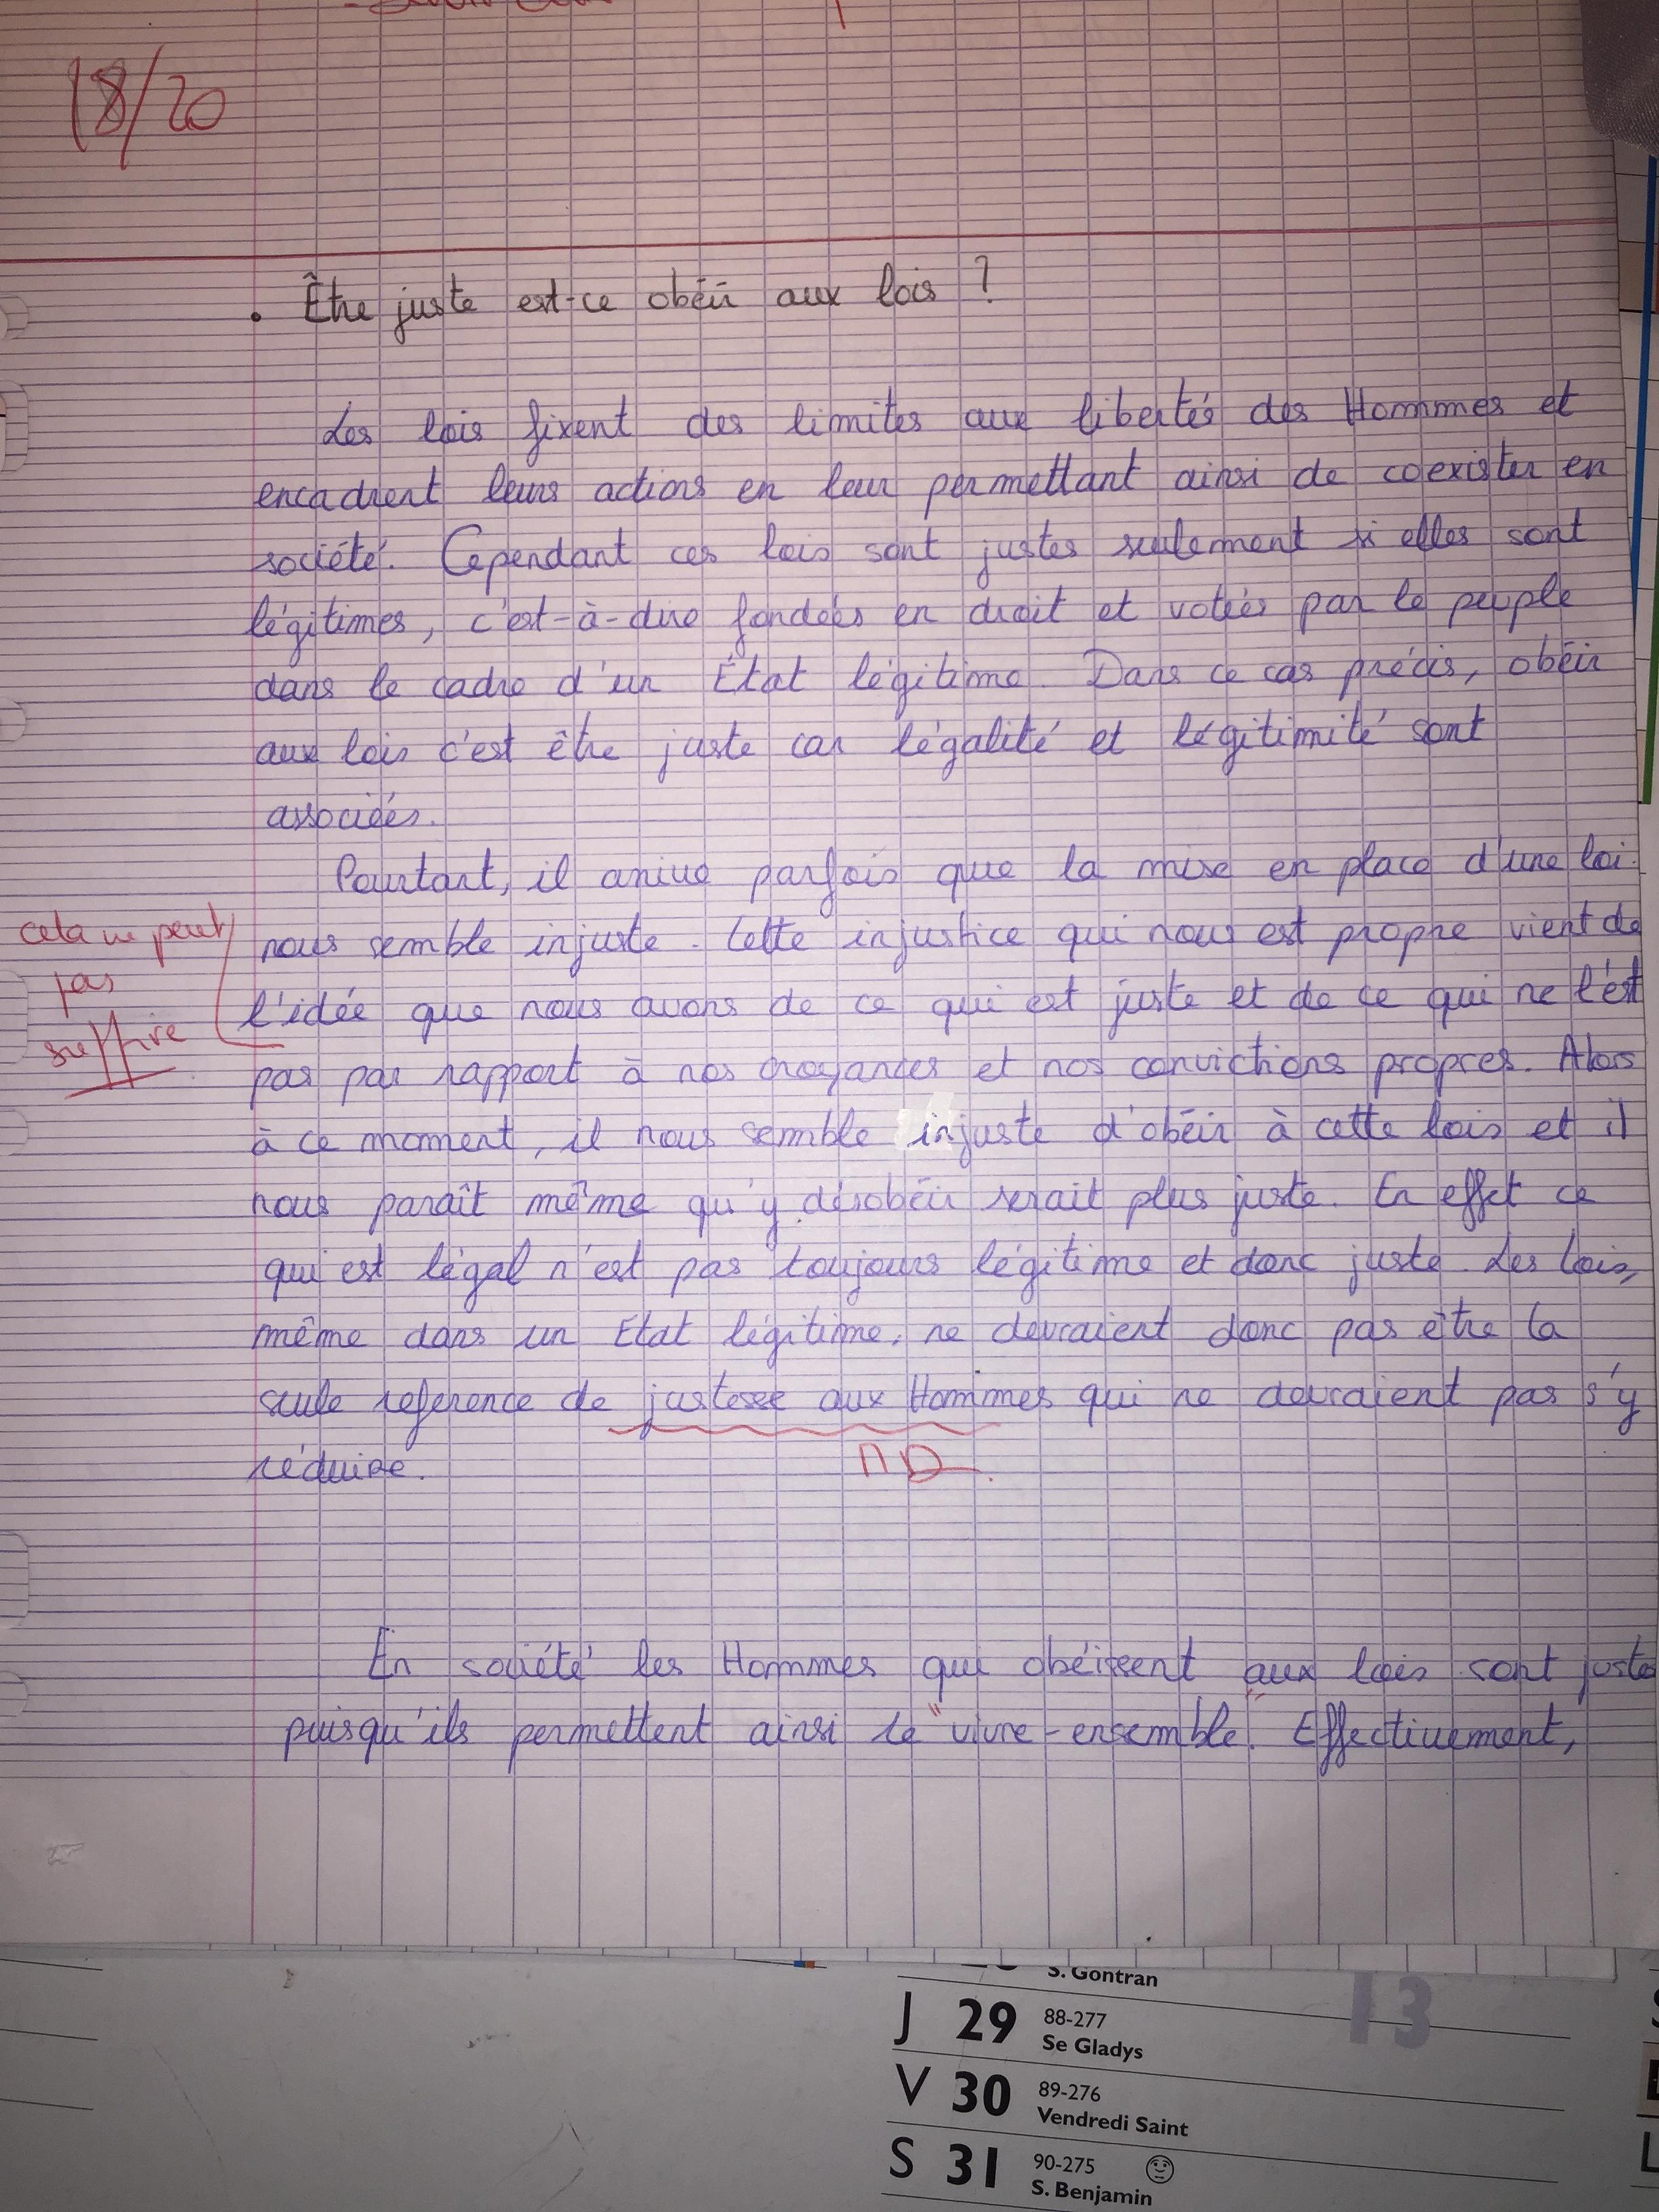 18/20
. Être juste est-ce obéir aux lois ?
Les lois fixent des limites aux libertés des Hommes et
encadrent leurs actions en leur permettant ainsi de coexister en
société. Cependant ces lois sont justes seulement si elles sont
légitimes, c'est-à-dire fondées en droit et votées par le peuple
dans le cadre d'un État légitime. Dans ce cas précis, obéir
aux lois c'est être juste car légalité et légitimité sont
associées.
Pourtant, il arrive parfois que la mise en place d'une loi
nous semble injuste. Cette injustice qui nous est propre vient de
l'idée que nous avons de ce qui est juste et de ce qui ne l'est
pas par rapport à nos croyances et nos convictions propres. Alors
à ce moment, il nous semble injuste d'obéir à cette lois et il
nous paraît même qu'y désobéir serait plus juste. En effet ce
qui est légal n'est pas toujours légitime et donc juste. Les lois,
même dans un Etat légitime, ne devraient donc pas être la
seule reference de justesse aux Hommes qui ne devraient pas s'y
réduire.
cela ne peut
pas
suffire
En société les Hommes qui obéissent aux lois sont justes
puisqu'ils permettent ainsi le "vivre-ensemble". Effectivement,
S. Gontran
J 29 88-277
Se Gladys
13
V 30 89-276
Vendredi Saint
S 31 90-275
S. Benjamin